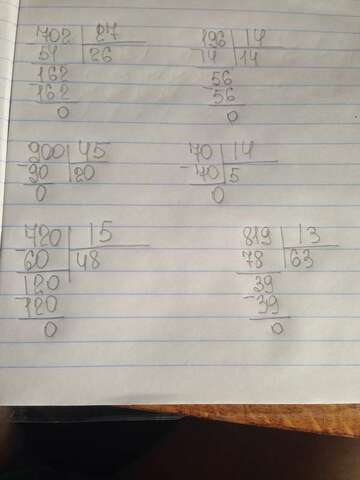 702 27
54 26
162
-162
0
196 14
14 14
56
-56
0
900 45
-90 20
0
70 14
-70 5
0
720 15
-60 48
120
-120
0
819 13
78 63
39
-39
0